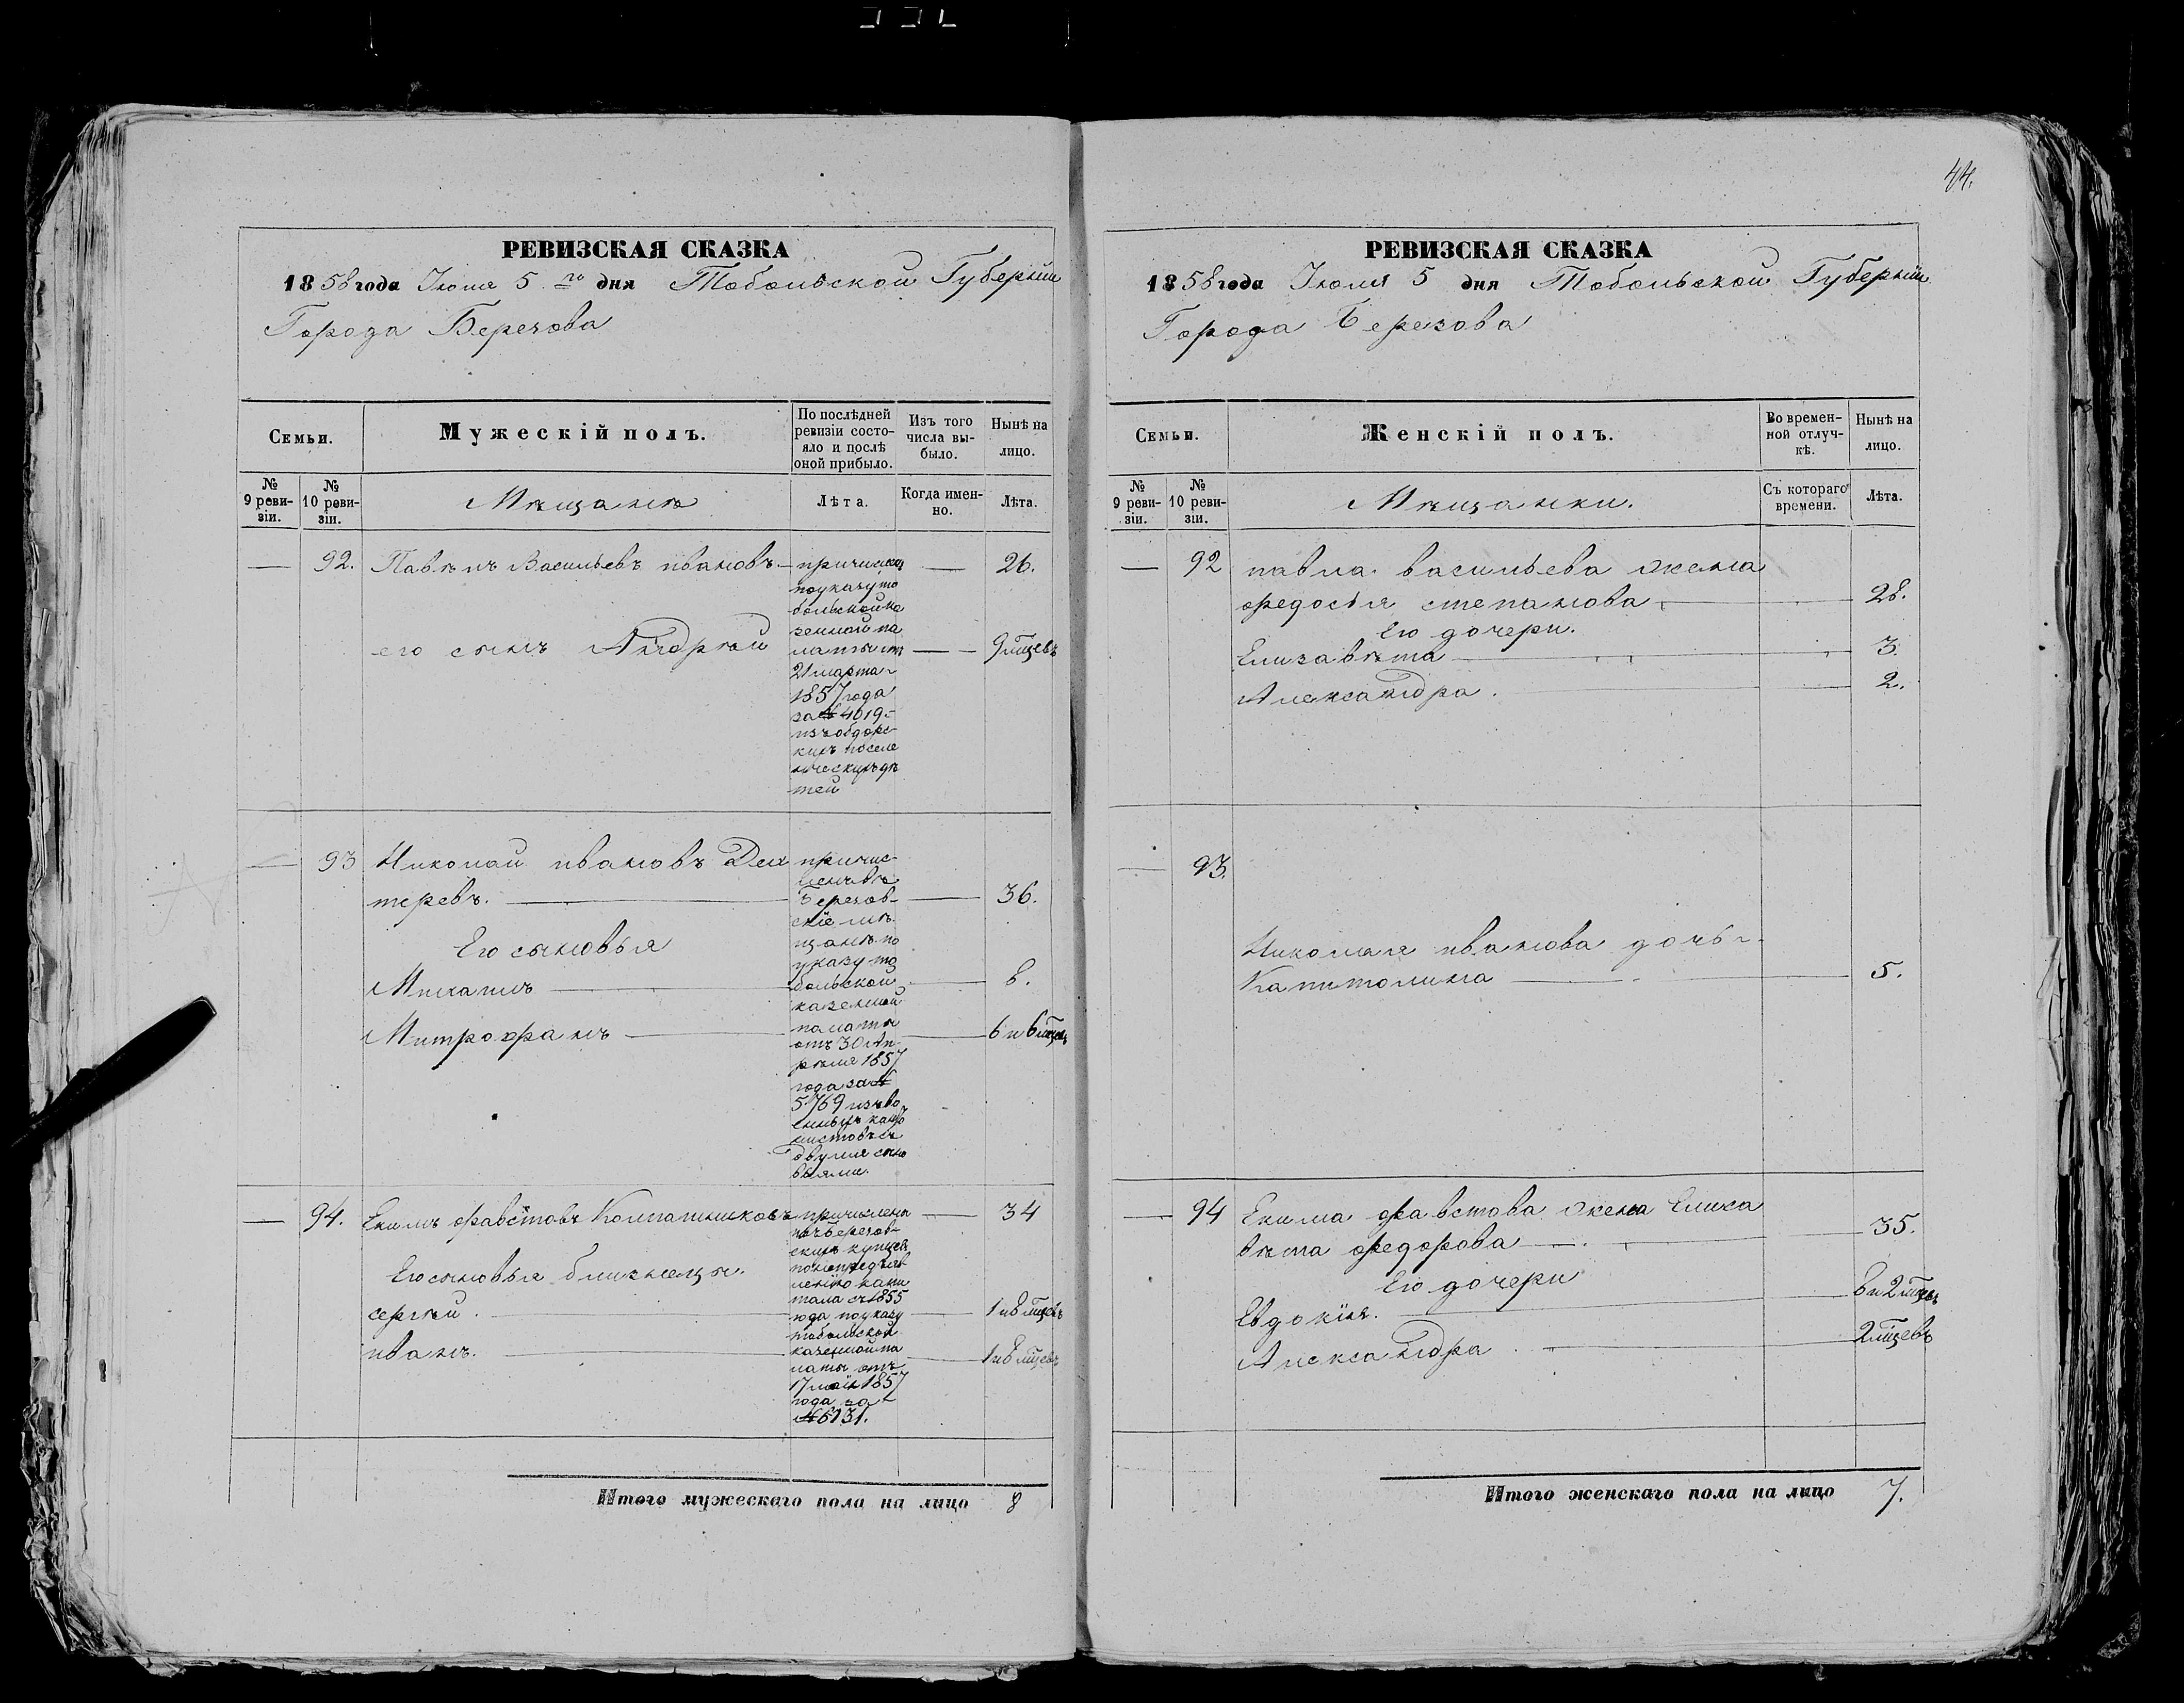 44.
РЕВИЗСКАЯ СКАЗКА
1858 года Июля 5 го дня Тобольской Губерніи
Города Березова
Семьи.
Мужескій полъ.
По послѣдней
ревизіи состо-
яло и послѣ
оной прибыло.
Изъ того
числа вы-
было.
Нынѣ на
лицо.
№
9 реви-
зіи.
№
10 реви-
зіи.
Мѣщанѣ
Лѣта.
Когда имен-
но.
Лѣта.
— 92. Павѣлъ Васильевъ ивановъ — — 26.
причислен
по указу то
больской ка
зенной па
латы отъ
21 марта
1857 года
за № 4019
изъ обдорс-
кихъ поселе
нческихъ дѣ
тей
его сынъ Андрѣй — 9 мѣцевъ
— 93 Николай ивановъ Дех
теревъ. — — 36.
Его сыновья
Михаилъ — — 8.
Митрофанъ — — 6 и 6 мѣцев
причис-
ленъ въ
Березов-
скіе мѣ
щанѣ по
указу то
больской
казенной
палаты
отъ 30 Ап
рѣля 1857
года за №
5769 изъ во
енныхъ канто
нистовъ съ
двумя сыно
вьями.
— 94. Екимъ фавстовъ — 34
Его сыновья близнецы.
сергѣй. — — 1 и 8 мѣцевъ
иванъ. — — 1 и 8 мѣцевъ
причислены
изъ Березов-
скихъ купцов
по непредъяв
ленію капи
тала съ 1855
года по указу
тобольской
казенной па
латы отъ
17 маія 1857
года за
№ 6131.
Итого мужескаго пола на лицо 8
РЕВИЗСКАЯ СКАЗКА
1858 года Июля 5 дня Тобольской Губерніи
Города Березова
Семьи.
Женскій полъ.
Во времен-
ной отлуч-
кѣ.
Нынѣ на
лицо.
№
9 реви-
зіи.
№
10 реви-
зіи.
Мѣщанки.
Съ котораго
времени.
Лѣта.
— 92 павла васильева жена
федосья степанова — 28.
Его дочери.
Елизавѣта — 3.
Александра. — 2.
— 93.
Николая иванова дочь
Капитолина — 5.
— 94 Екима фавстова жена Елиза
вѣта федорова — 35.
Его дочери
Евдокія. — 8 и 2 мѣцев
Александра. — 2 мѣцевъ
Итого женскаго пола на лицо 7.